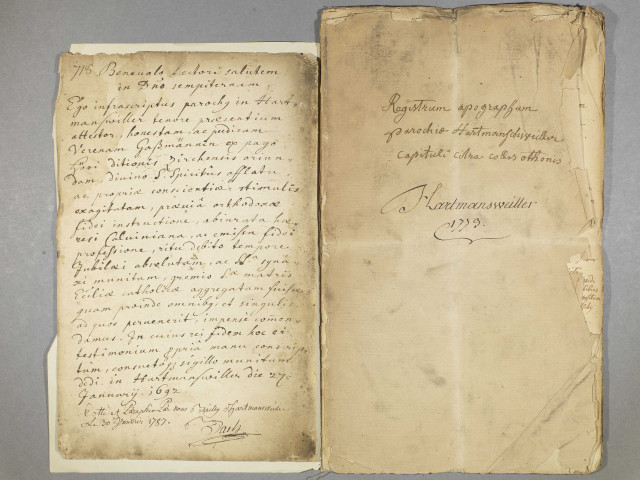 718 Benevolo Lectori salutem
in Dno sempiternam
Ego infrascriptus parochy in Hart-
manswiller tenore præsentium
attestor, honestam ac pudicam
Verenam Gaßmännin ex pago
ditionis oriun-
dam, divino S. Spiritus afflatu,
ac propriæ conscientiæ stimulis
exagitatam, præviâ orthodoxæ
fidei instructione, abiurata hæ-
resi Calviniana, ac emissa fidei
professione, ritu debito tempore
Jubilæi absolutam, ac
ac munitam, gremio Sæ matris
Ecliæ catholicæ aggregatam fuisse,
quam proinde omnibg et singulis,
ad quos pervenerit, impensè comen-
damus. In cuius rei fidem hoc
testimonium ppriâ manu conscrip-
tum, consueto sigillo munitum
dedi in Hartmanswiller die 27
January. 1692
Le 30 Janvier 1787.
Registrum apographum
parochiæ Hartmansweiller
capituli citra colles othonis
Hartmansweiller
1773.